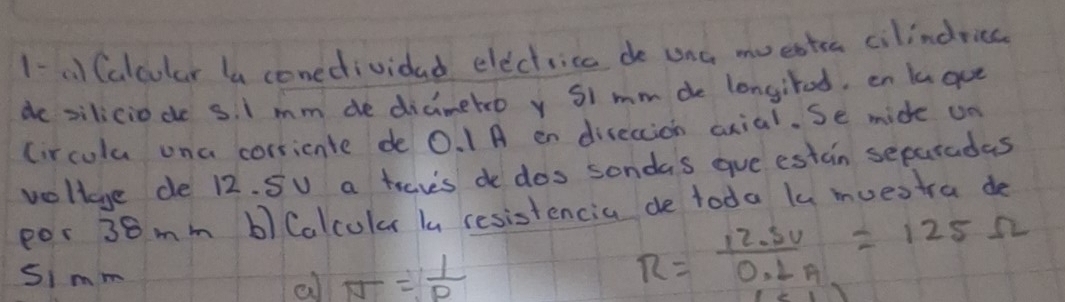 1- a) Calcular la conectividad eléctrica de una muestra cilíndrica
de silicio de 5.1 mm de diámetro y 51 mm de longitud. en la que
Circula una corriente de 0.1 A en dirección axial. Se mide un
voltage de 12.5V a través de dos sondas que están separadas
por 38 mm b) Calcular la resistencia de toda la muestra de
51 mm
a) σ = 1/ρ
R = 12.5V / 0.1 A = 125 Ω